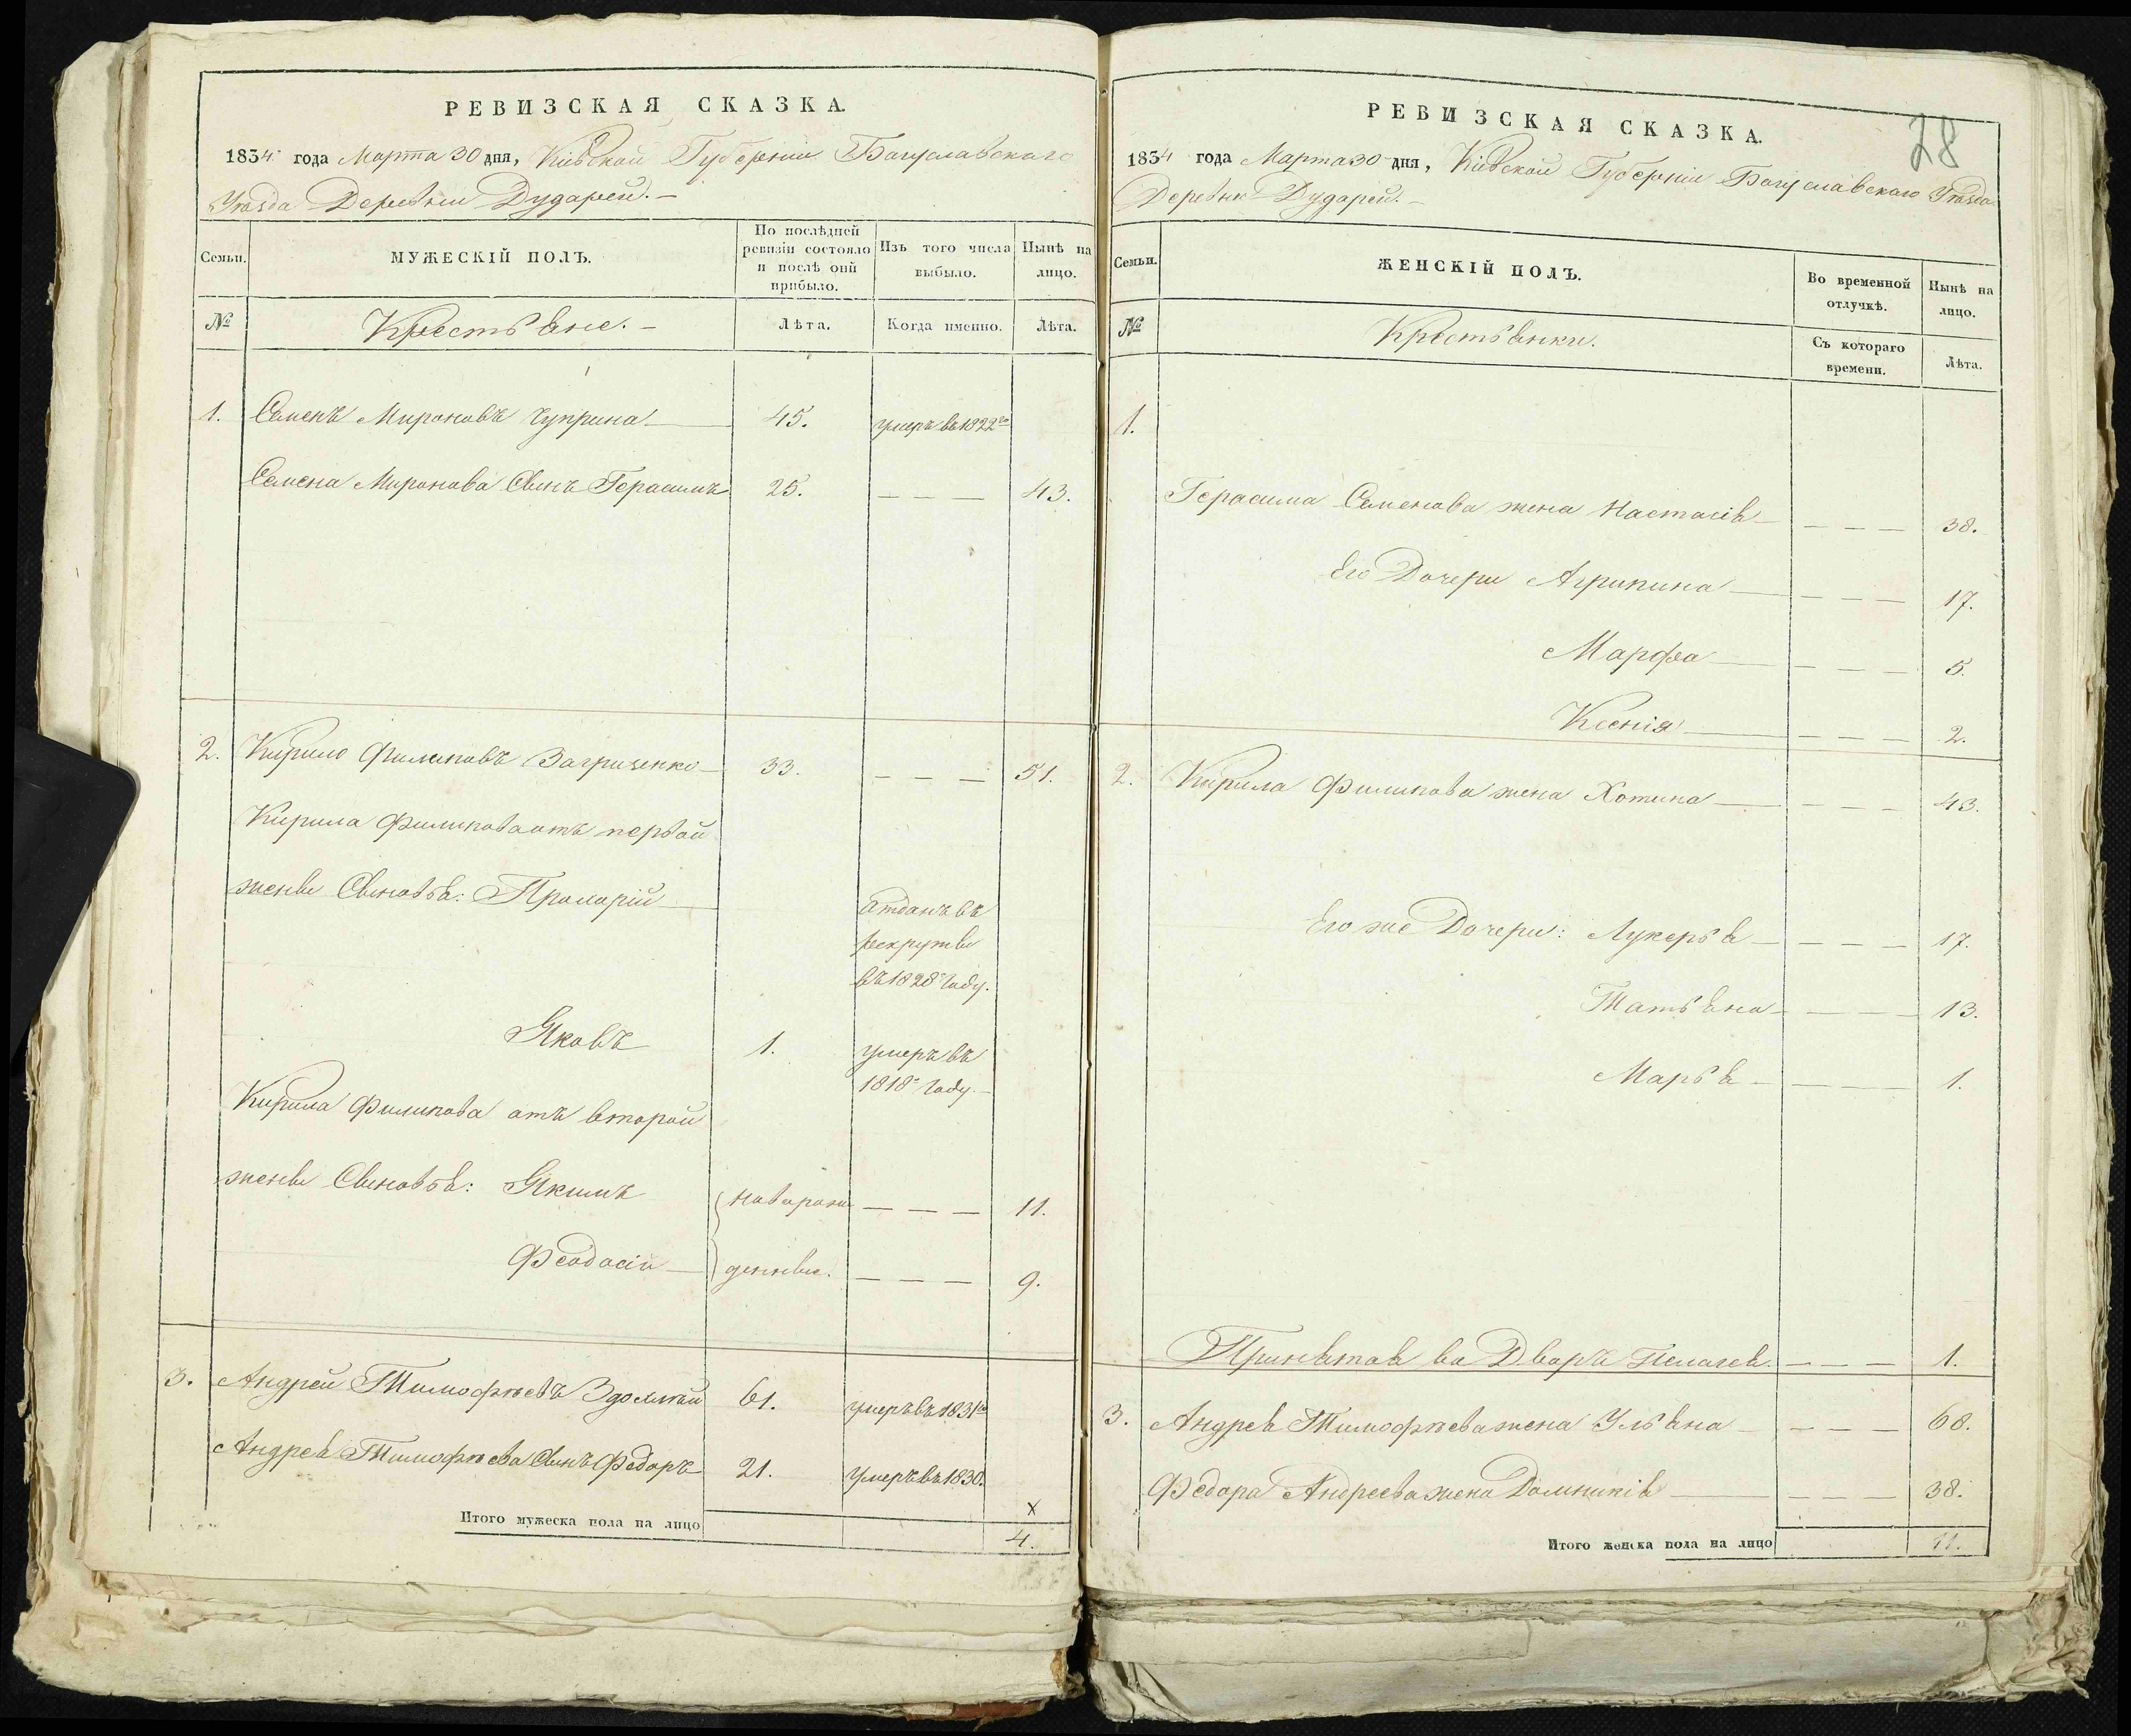 РЕВИЗСКАЯ СКАЗКА.
1834 года Марта 30 дня, Кіевской Губерніи Богуславскаго
Уѣзда Деревни Дударей.
Семьи.
МУЖЕСКІЙ ПОЛЪ.
По послѣдней
ревизіи состояло
и послѣ оній
прибыло.
Изъ того числа
выбыло.
Нынѣ на
лицо.
№
Крестьяне.
Лѣта.
Когда именно.
Лѣта.
1. Семенъ Мироновъ Чуприна 45. умеръ въ 1822го
Семена Миронова Сынъ Герасимъ 25. — — — 43.
2. Кирило Филиповъ Загриченко 33. — — — 51.
Кирила Филипова отъ первой
жены Сыновья:
отданъ въ
рекруты
въ 1828 году.
Яковъ 1. умеръ въ
1818 году.
Кирила Филипова отъ второй
жены Сыновья: Якимъ новорож — — — 11.
Феодосій денные. — — — 9.
3. Андрей Тимофѣевъ 61. умеръ въ 1831го
Андрея Тимофѣева Сынъ Федоръ 21. умеръ въ 1830.
х
Итого мужеска пола на лицо 4.
28
РЕВИЗСКАЯ СКАЗКА.
1834 года Марта 30 дня, Кіевской Губерніи Богуславскаго Уѣзда
Деревни Дударей.
Семьи.
ЖЕНСКІЙ ПОЛЪ.
Во временной
отлучкѣ.
Нынѣ на
лицо.
№
Крестьянки.
Съ котораго
времени.
Лѣта.
1.
Герасима Семенова жена Настасія — — — 38.
Его Дочери Агрипина — — — 17.
Марфа — — — 5.
Ксенія — — — 2.
2. Кирила Филипова жена Хотина — — — 43.
Его же Дочери: Лукерья — — — 17.
Татьяна — — — 13.
Марья — — — 1.
Принятая во Дворъ Пелагея. — — — 1.
3. Андрея Тимофѣева жена Ульяна — — — 68.
Федора Андреева жена Домникія — — — 38.
Итого женска пола на лицо 11.